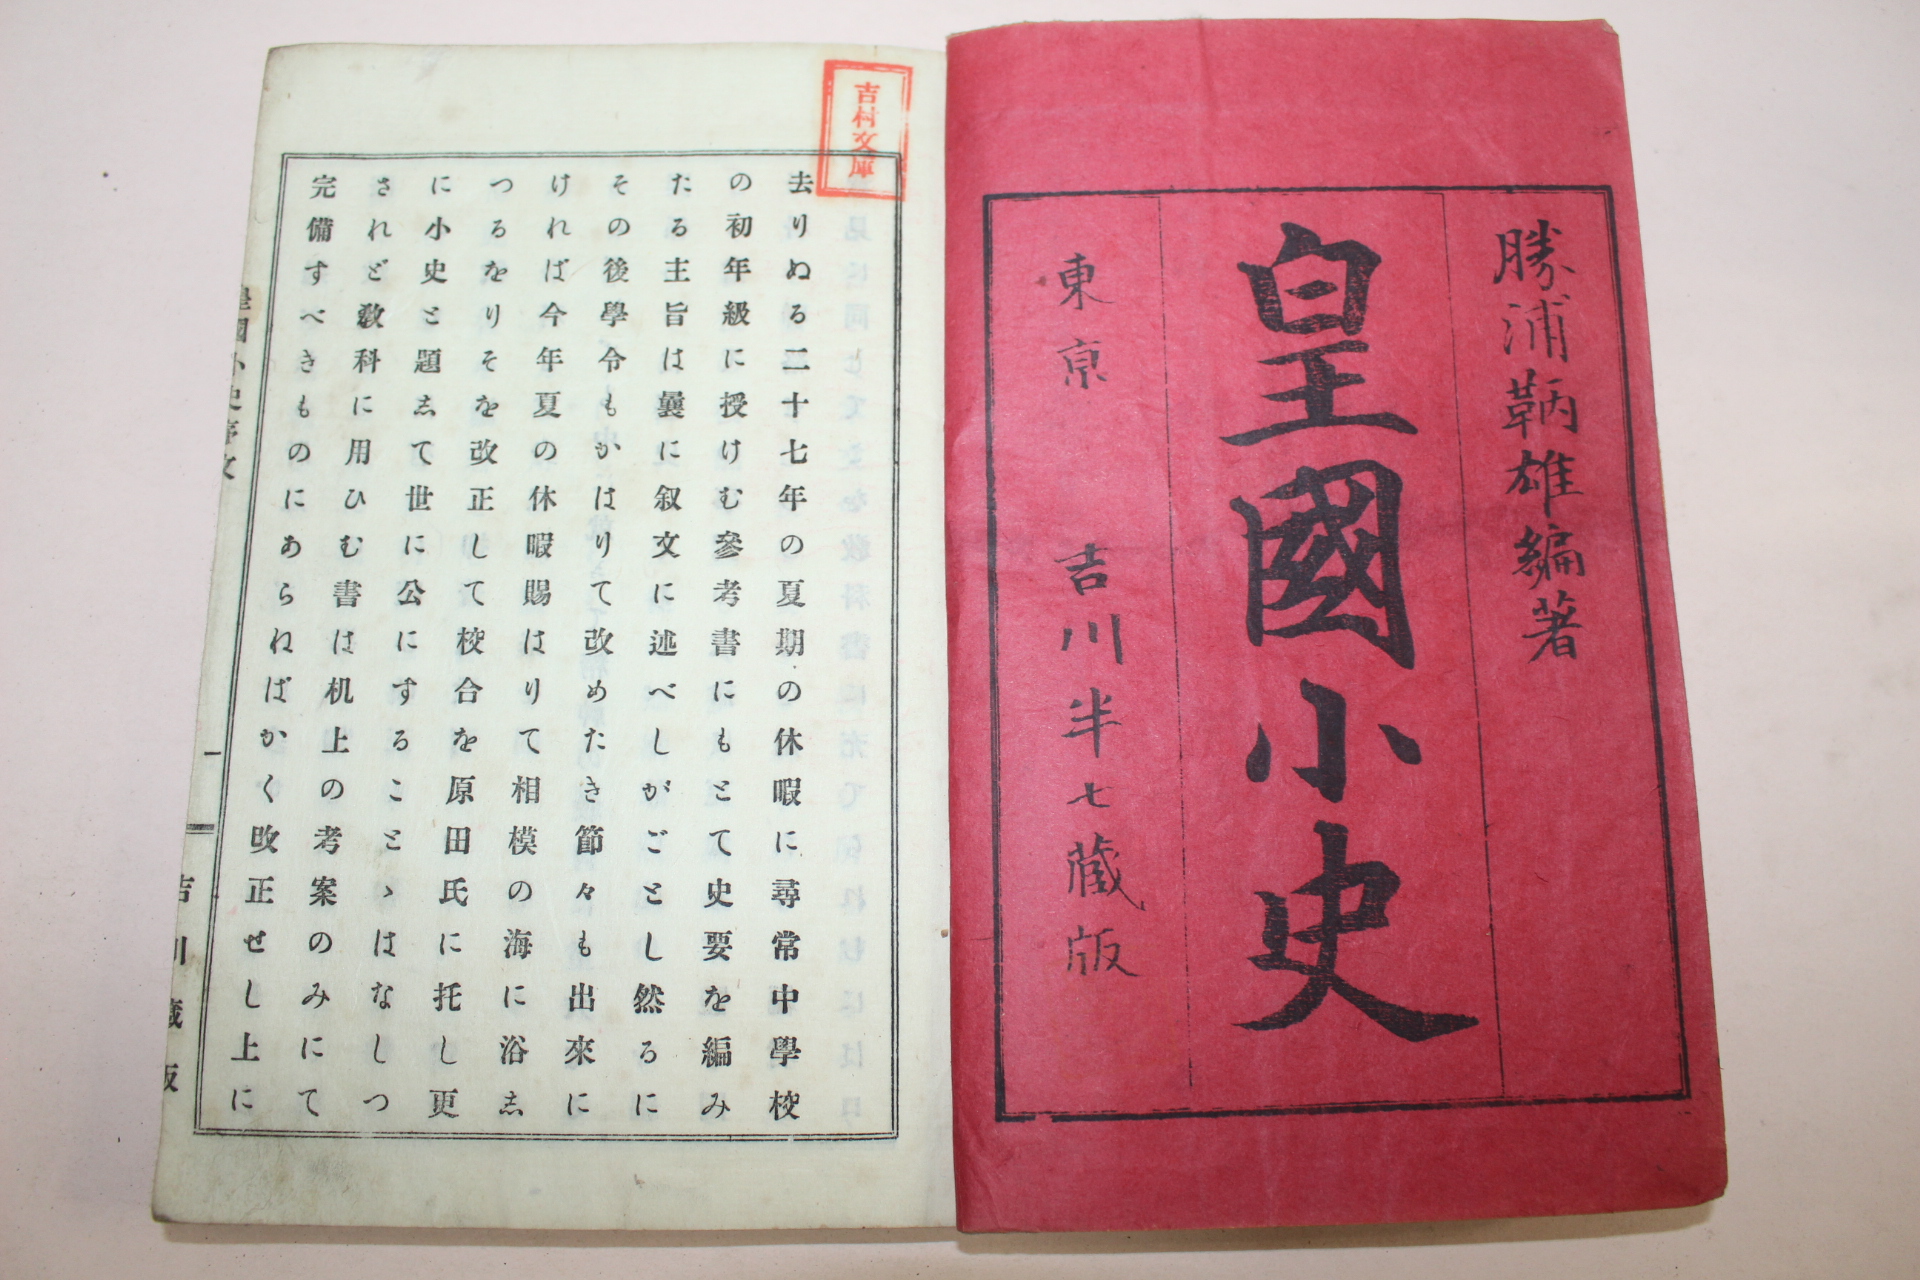 勝浦鞆雄編著
皇國小史
東京 吉川半七藏版
吉村文庫
去りぬる二十七年の夏期の休暇に尋常中學校
の初年級に授けむ參考書にもとて史要を編み
たる主旨は曩に叙文に述べしがごとし然るに
その後學令もかはりて改めたき節々も出來に
ければ今年夏の休暇賜はりて相模の海に浴志
つるをりそを改正して校合を原田氏に托し更
に小史と題志て世に公にすることゝはなしつ
されど敎科に用ひむ書は机上の考案のみにて
完備すべきものにあらねばかく改正せし上に
皇國小史序文
一
吉川藏版